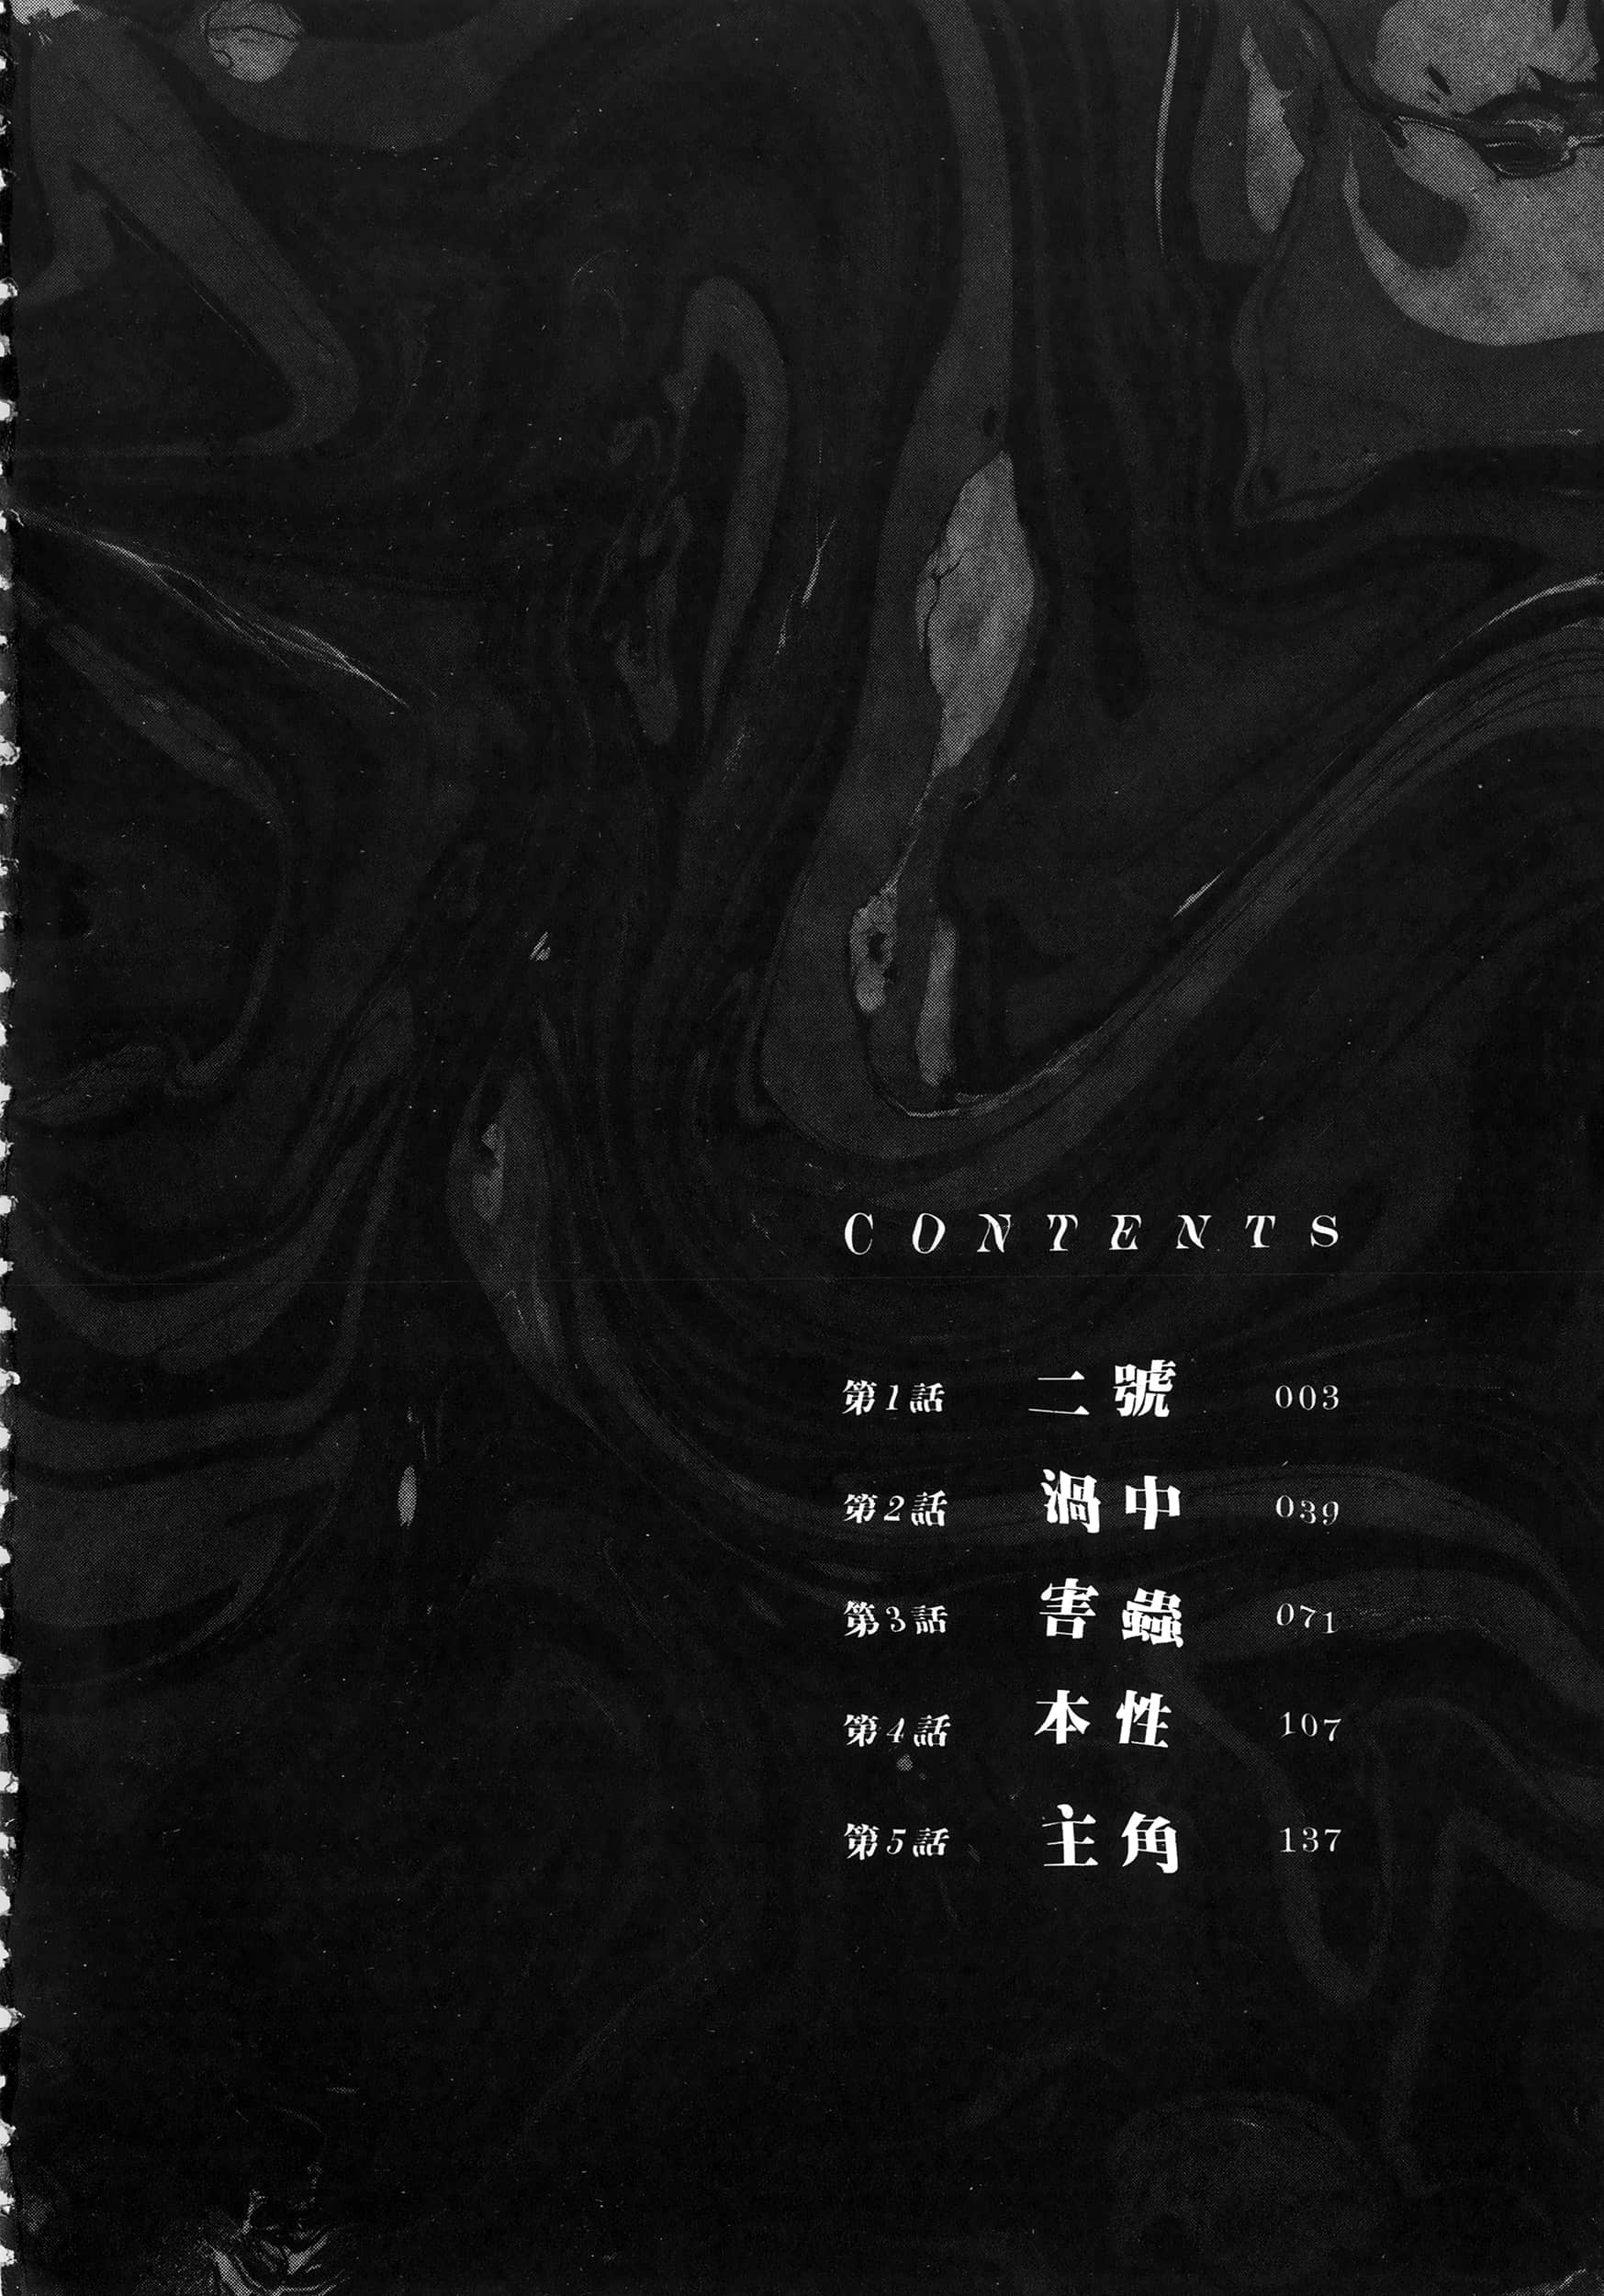 CONTENTS
第1話 二號 003
第2話 渦中 039
第3話 害蟲 071
第4話 本性 107
第5話 主角 137